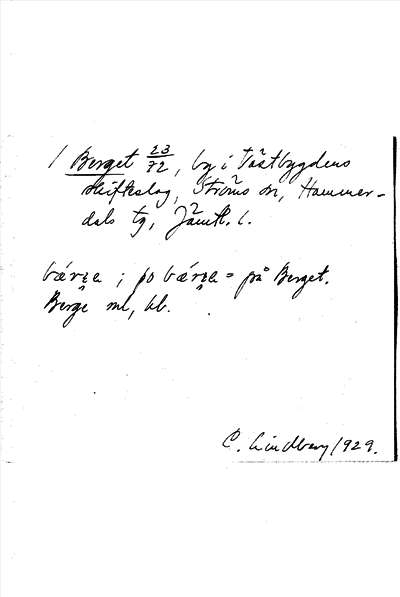 / Berget 23/72, by i Västbygdens
skifteslag, Ströms sn, Hammer-
dals tg, Jämtl. l.
; po = på Berget.
Berge ml, bb.
C. Lindberg 1929.